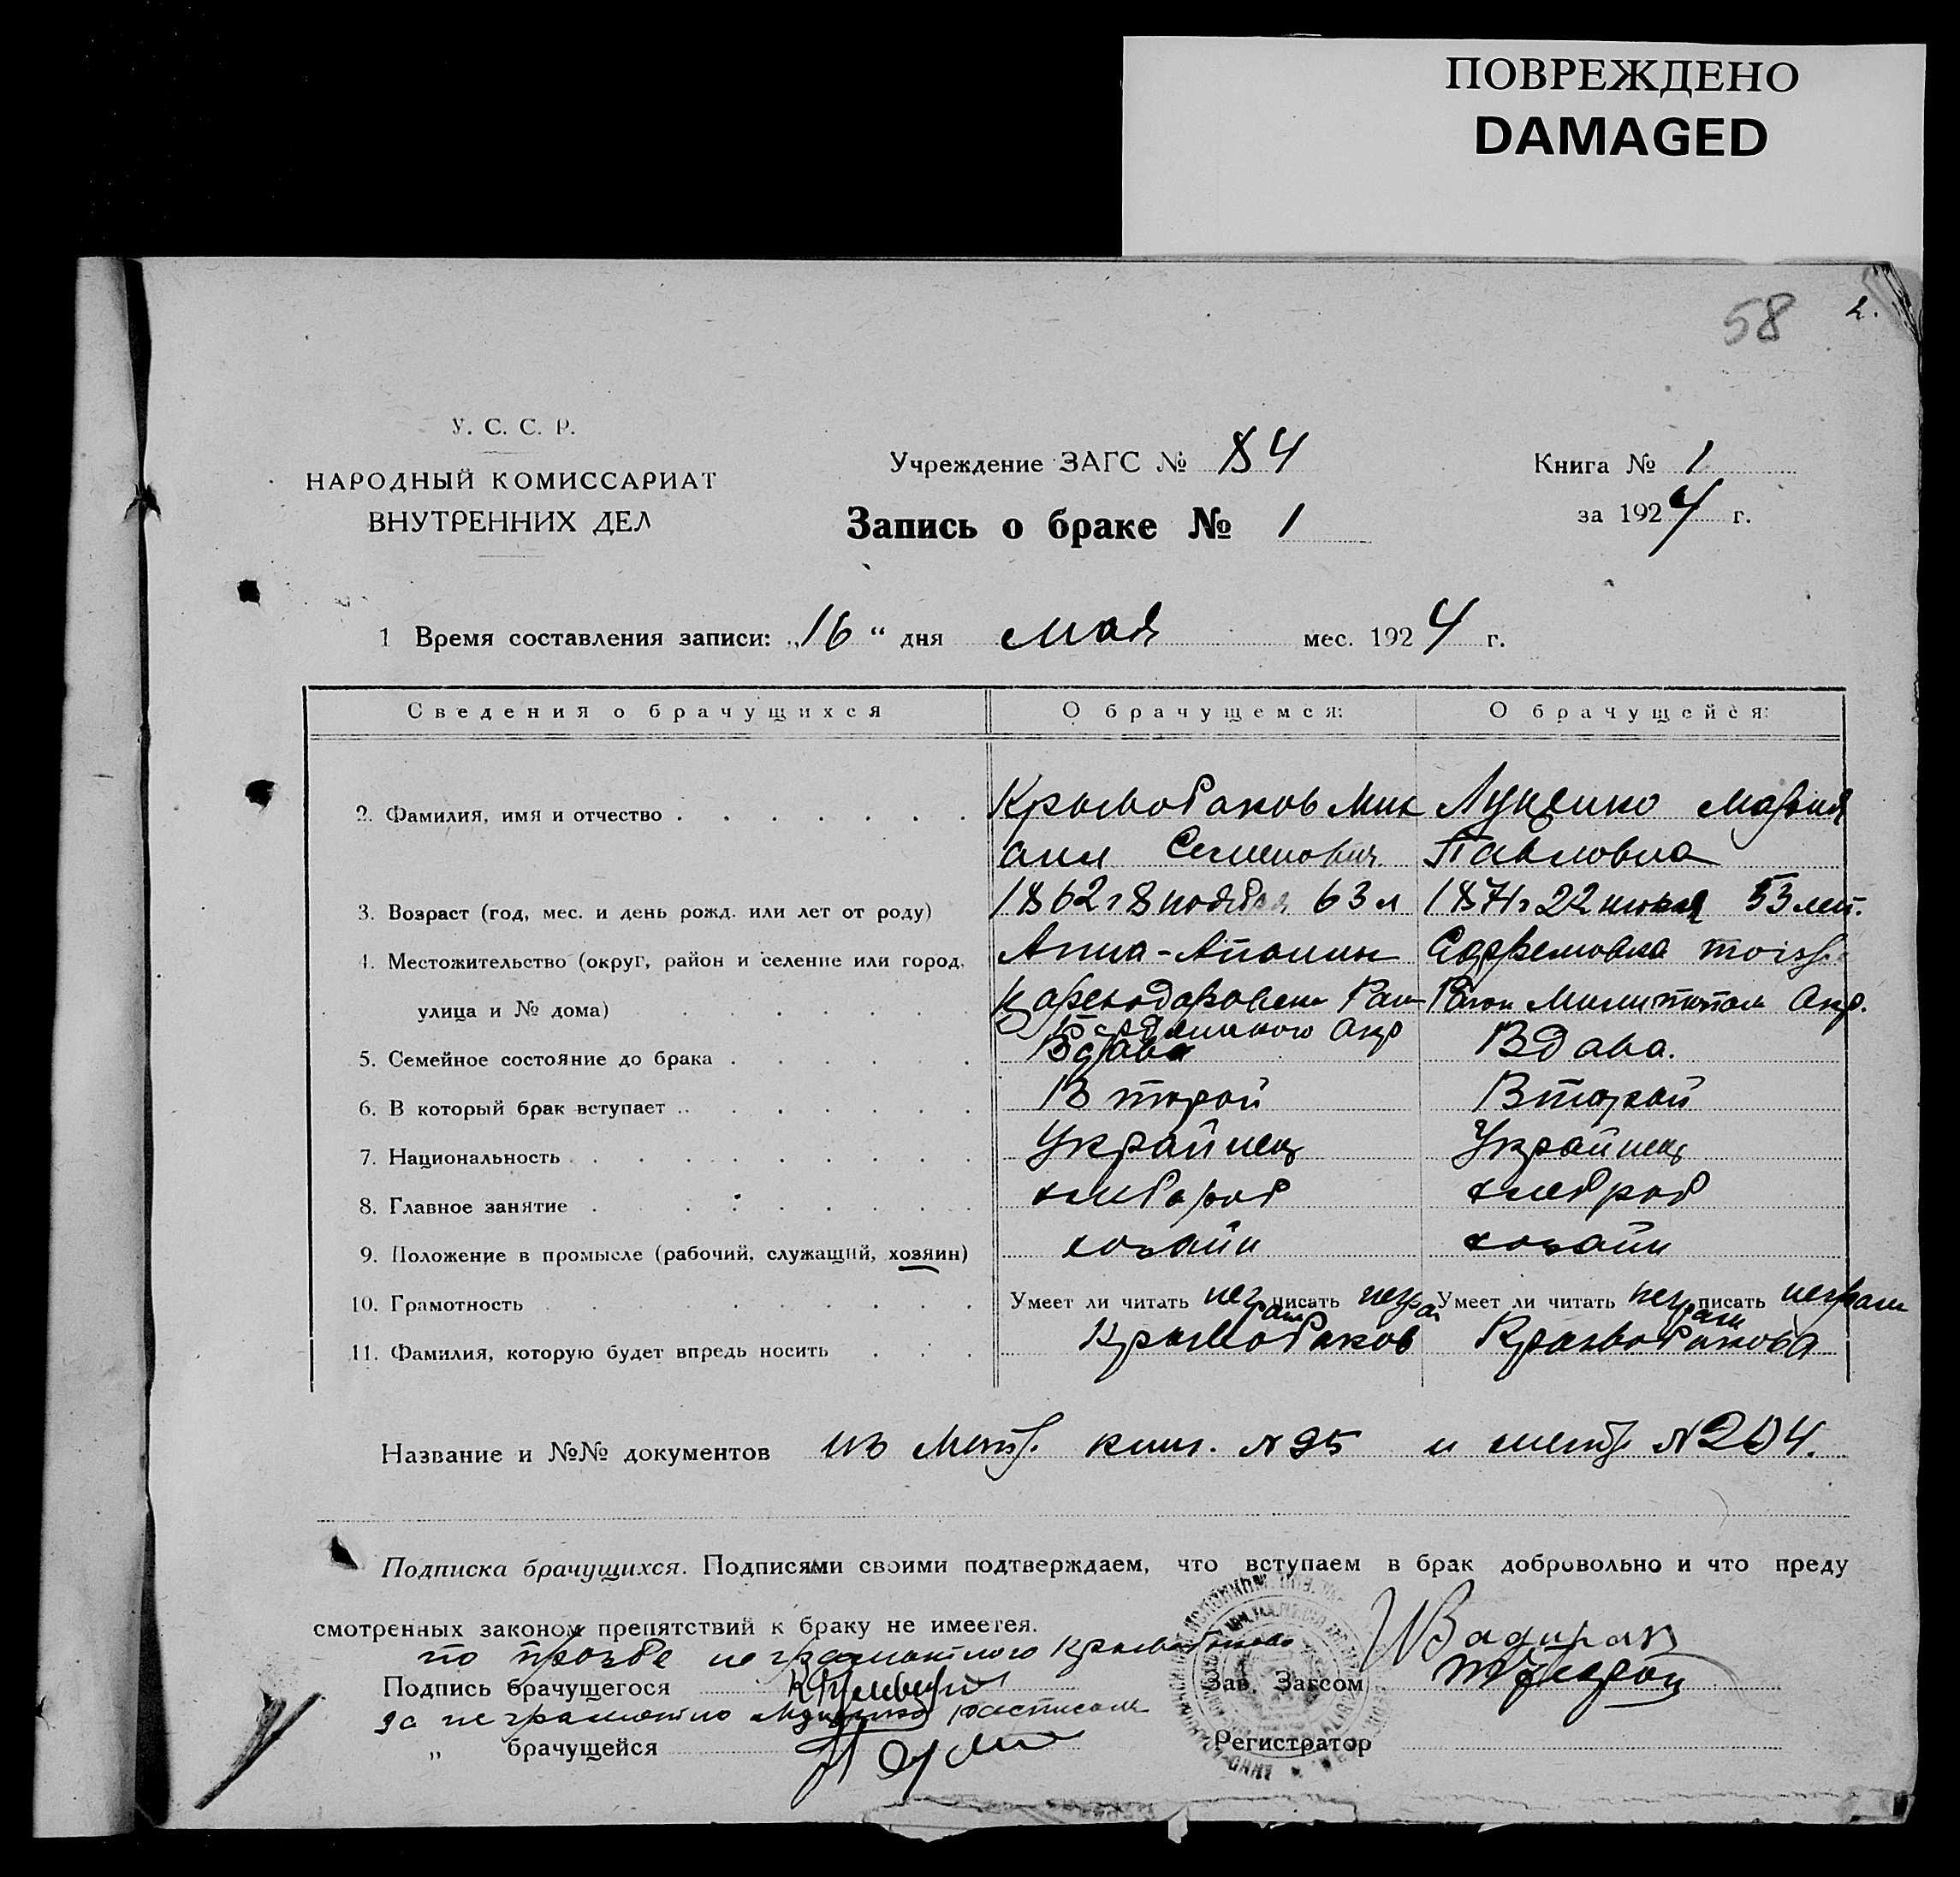 ПОВРЕЖДЕНО
DAMAGED
58 2.
У. С. С. Р.
НАРОДНЫЙ КОМИССАРИАТ
ВНУТРЕННИХ ДЕЛ
Учреждение ЗАГС № 84
Запись о браке № 1
Книга № 1
за 1924 г.
1 Время составления записи: „16“ дня мая мес. 1924 г.
Сведения о брачущихся О брачущемся: О брачущейся:
2. Фамилия, имя и отчество Кривобаков Мих Луценко Мария
аил Семенович Павловна
3. Возраст (год, мес. и день рожд. или лет от роду) 1862 г 8 ноября 63 л 1871 г 22 июля 53 лет.
4. Местожительство (округ, район и селение или город, Анна-
улица и № дома) Раи Раион Милитопол Окр.
Окр
5. Семейное состояние до брака Вдова Вдова.
6. В который брак вступает Второй Второй
7. Национальность Украйнец Украйнец
8. Главное занятие хлебороб хлеброб
9. Положение в промысле (рабочий, служащий, хозяин) хозайн хозайн
10. Грамотность Умеет ли читать неграм писать неграм Умеет ли читать неграм писать неграм
11. Фамилия, которую будет впредь носить Кривобаков Кривобакова
Название и №№ документов из Метр. книг. № 95 и метр № 204.
Подписка брачущихся. Подписями своими подтверждаем, что вступаем в брак добровольно и что преду
смотренных законом препятствий к браку не имеется.
по прозбе не грамотного Кривобакова
Подпись брачущегося
за не грамотно Луценко растисал
„ брачущейся
Зав. Загсом
Регистратор